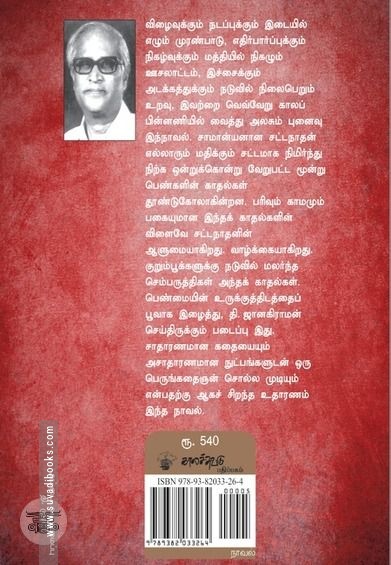 விழைவுக்கும் நடப்புக்கும் இடையில்
எழும் முரண்பாடு, எதிர்பார்ப்புக்கும்
நிகழ்வுக்கும் மத்தியில் நிகழும்
ஊசலாட்டம், இச்சைக்கும்
அடக்கத்துக்கும் நடுவில் நிலைபெறும்
உறவு, இவற்றை வெவ்வேறு காலப்
பின்னணியில் வைத்து அலசும் புனைவு
இந்நாவல். சாமான்யனான சட்டநாதன்
எல்லாரும் மதிக்கும் சட்டமாக நிமிர்ந்து
நிற்க ஒன்றுக்கொன்று வேறுபட்ட மூன்று
பெண்களின் காதல்கள்
தூண்டுகோலாகின்றன. பரிவும் காமமும்
பகையுமான இந்தக் காதல்களின்
விளைவே சட்டநாதனின்
ஆளுமையாகிறது. வாழ்க்கையாகிறது.
குறும்பூக்களுக்கு நடுவில் மலர்ந்த
செம்பருத்திகள் அந்தக் காதல்கள்.
பெண்மையின் உருக்குத்திடத்தைப்
பூவாக இழைத்து, தி. ஜானகிராமன்
செய்திருக்கும் படைப்பு இது.
சாதாரணமான கதையையும்
அசாதாரணமான நுட்பங்களுடன் ஒரு
பெருங்கதைஞன் சொல்ல முடியும்
என்பதற்கு ஆகச் சிறந்த உதாரணம்
இந்த நாவல்.
ரூ. 540
காலச்சுவடு
பதிப்பகம்
ISBN 978-93-82033-26-4
00003
9 789382 033264
நாவல்
www.suvadibooks.com